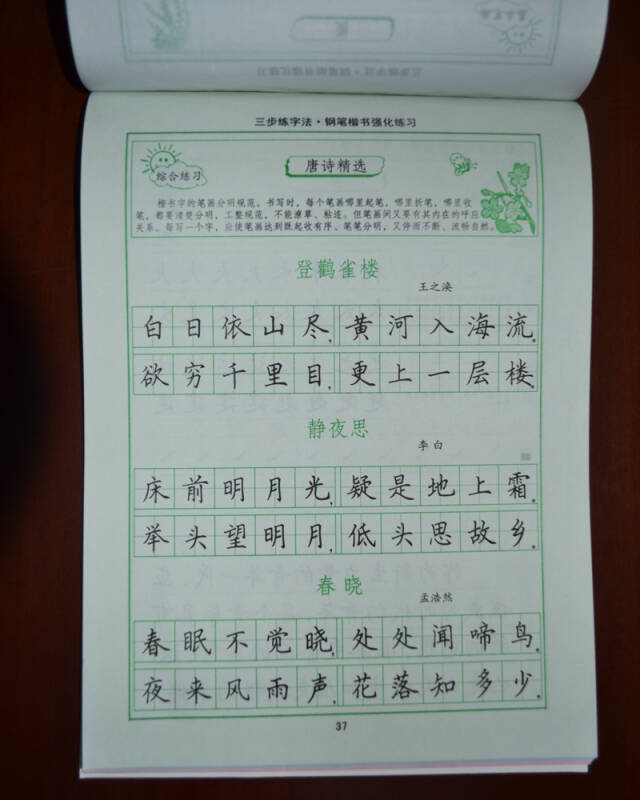 三步练字法·钢笔楷书强化练习
综合练习
唐诗精选
楷书字的笔画分明规范。书写时，每个笔画哪里起笔，哪里折笔，哪里收
笔，都要清楚分明，工整规范，不能潦草、粘连。但笔画间又要有其内在的呼应
关系。每写一个字，应使笔画达到既起收有序、笔笔分明，又停而不断、流畅自然。
登鹳雀楼
王之涣
白日依山尽，黄河入海流。
欲穷千里目，更上一层楼。
静夜思
李白
床前明月光，疑是地上霜。
举头望明月，低头思故乡。
春晓
孟浩然
春眠不觉晓，处处闻啼鸟。
夜来风雨声，花落知多少。
37